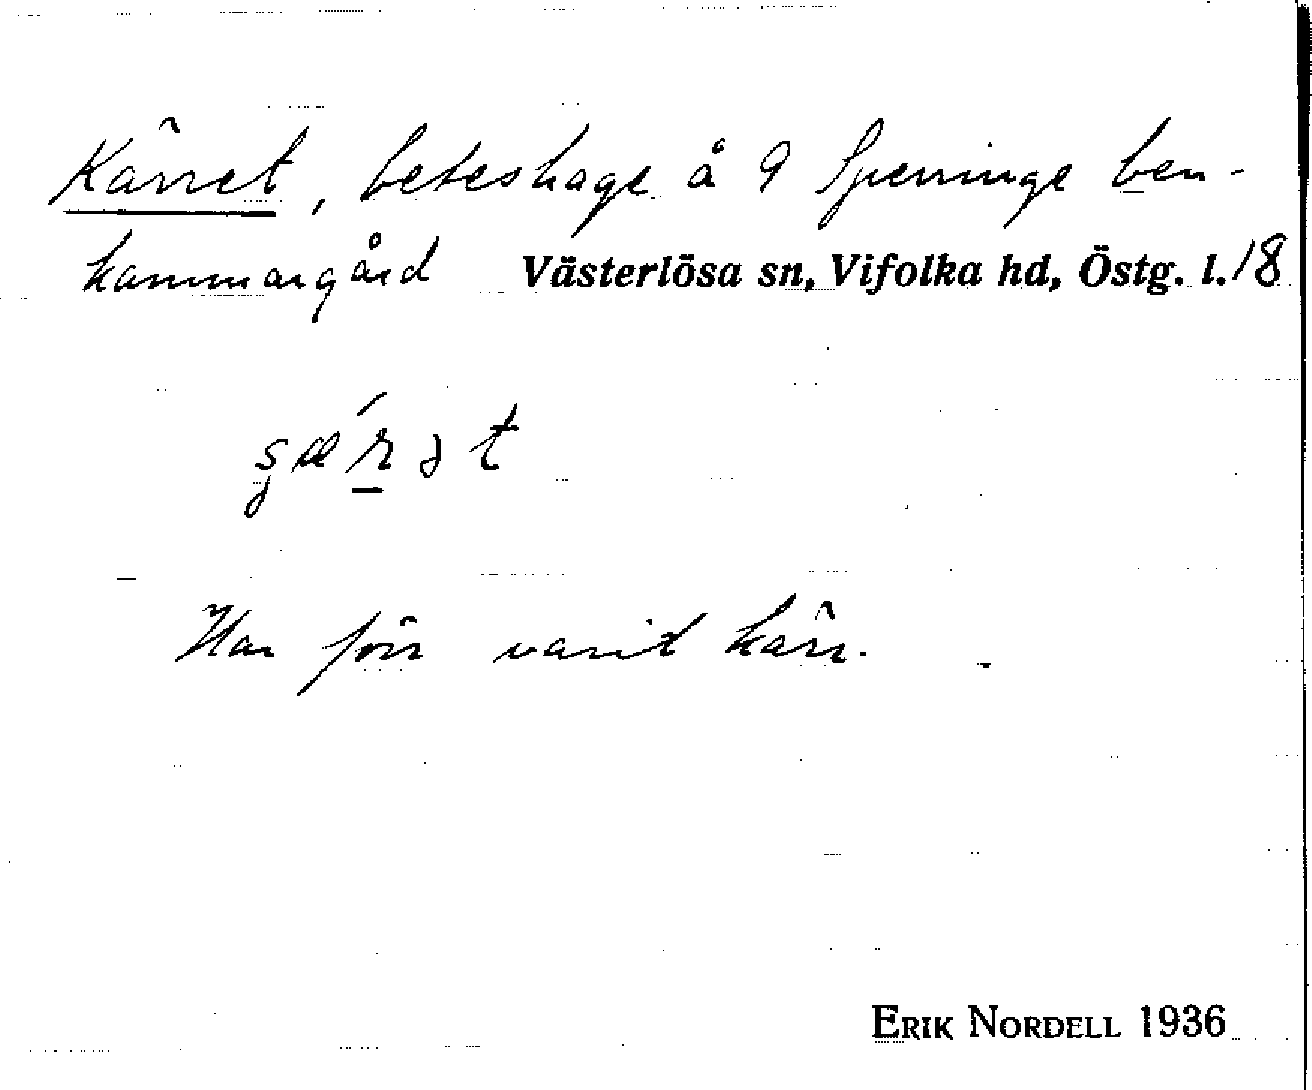 Kärret, beteshage å 9 Sjerringe ben-
hammargård Västerlösa sn, Vifolka hd, Östg. l. 18
Har förr varit kärr.
ERIK NORDELL 1936